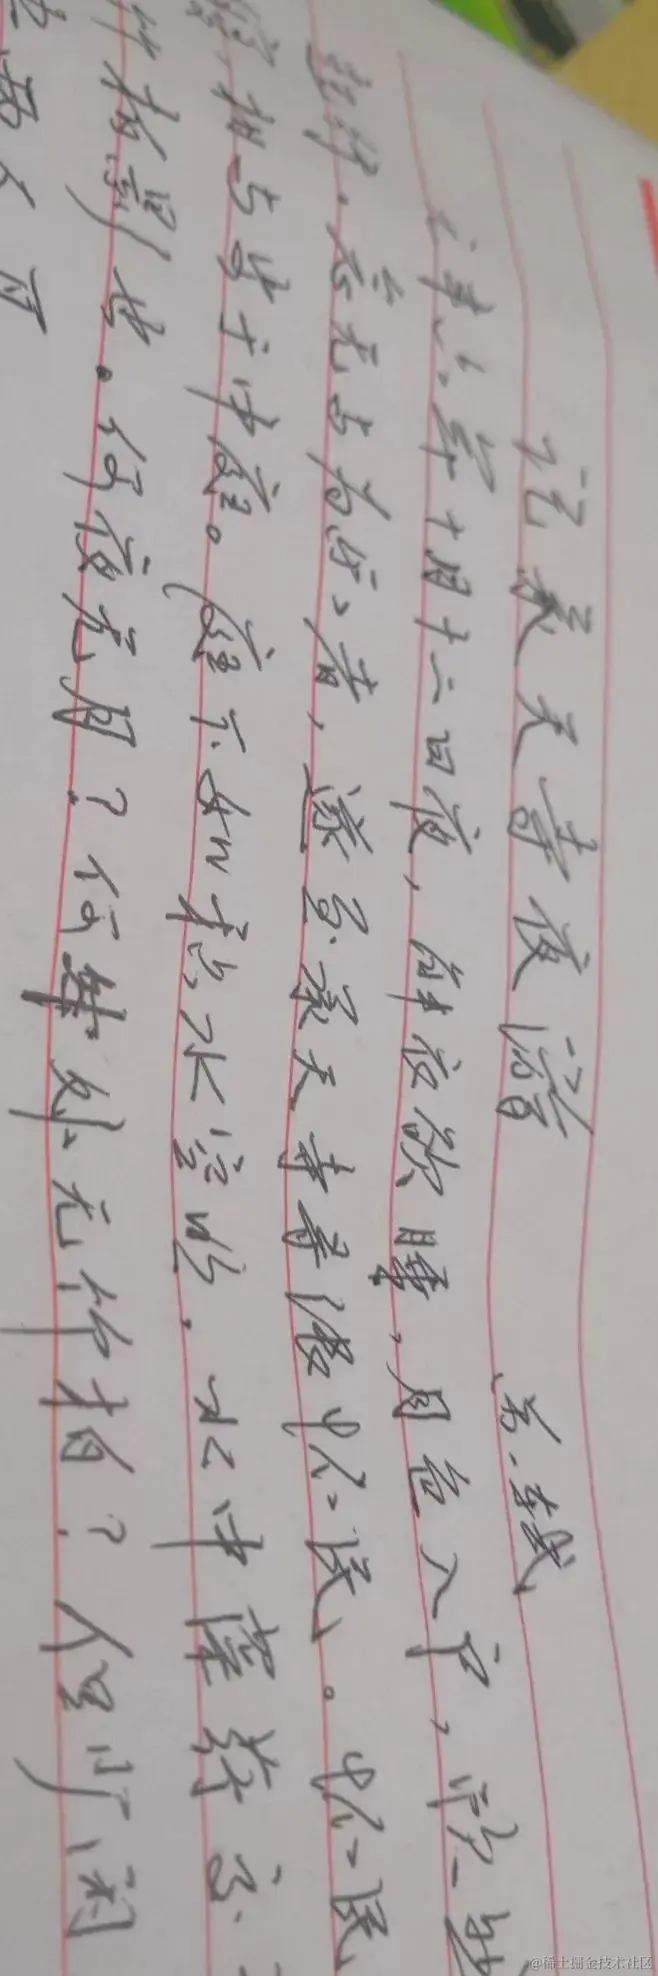 记承天寺夜游 苏轼
丰六年十月十二日夜，解衣欲睡，月色入户，欣然
起行。念无与为乐者，遂至承天寺寻张怀民。怀民
寝，相与步于中庭。庭下如积水空明，水中藻荇交
竹柏影也。何夜无月？何处无竹柏？但少闲
两人